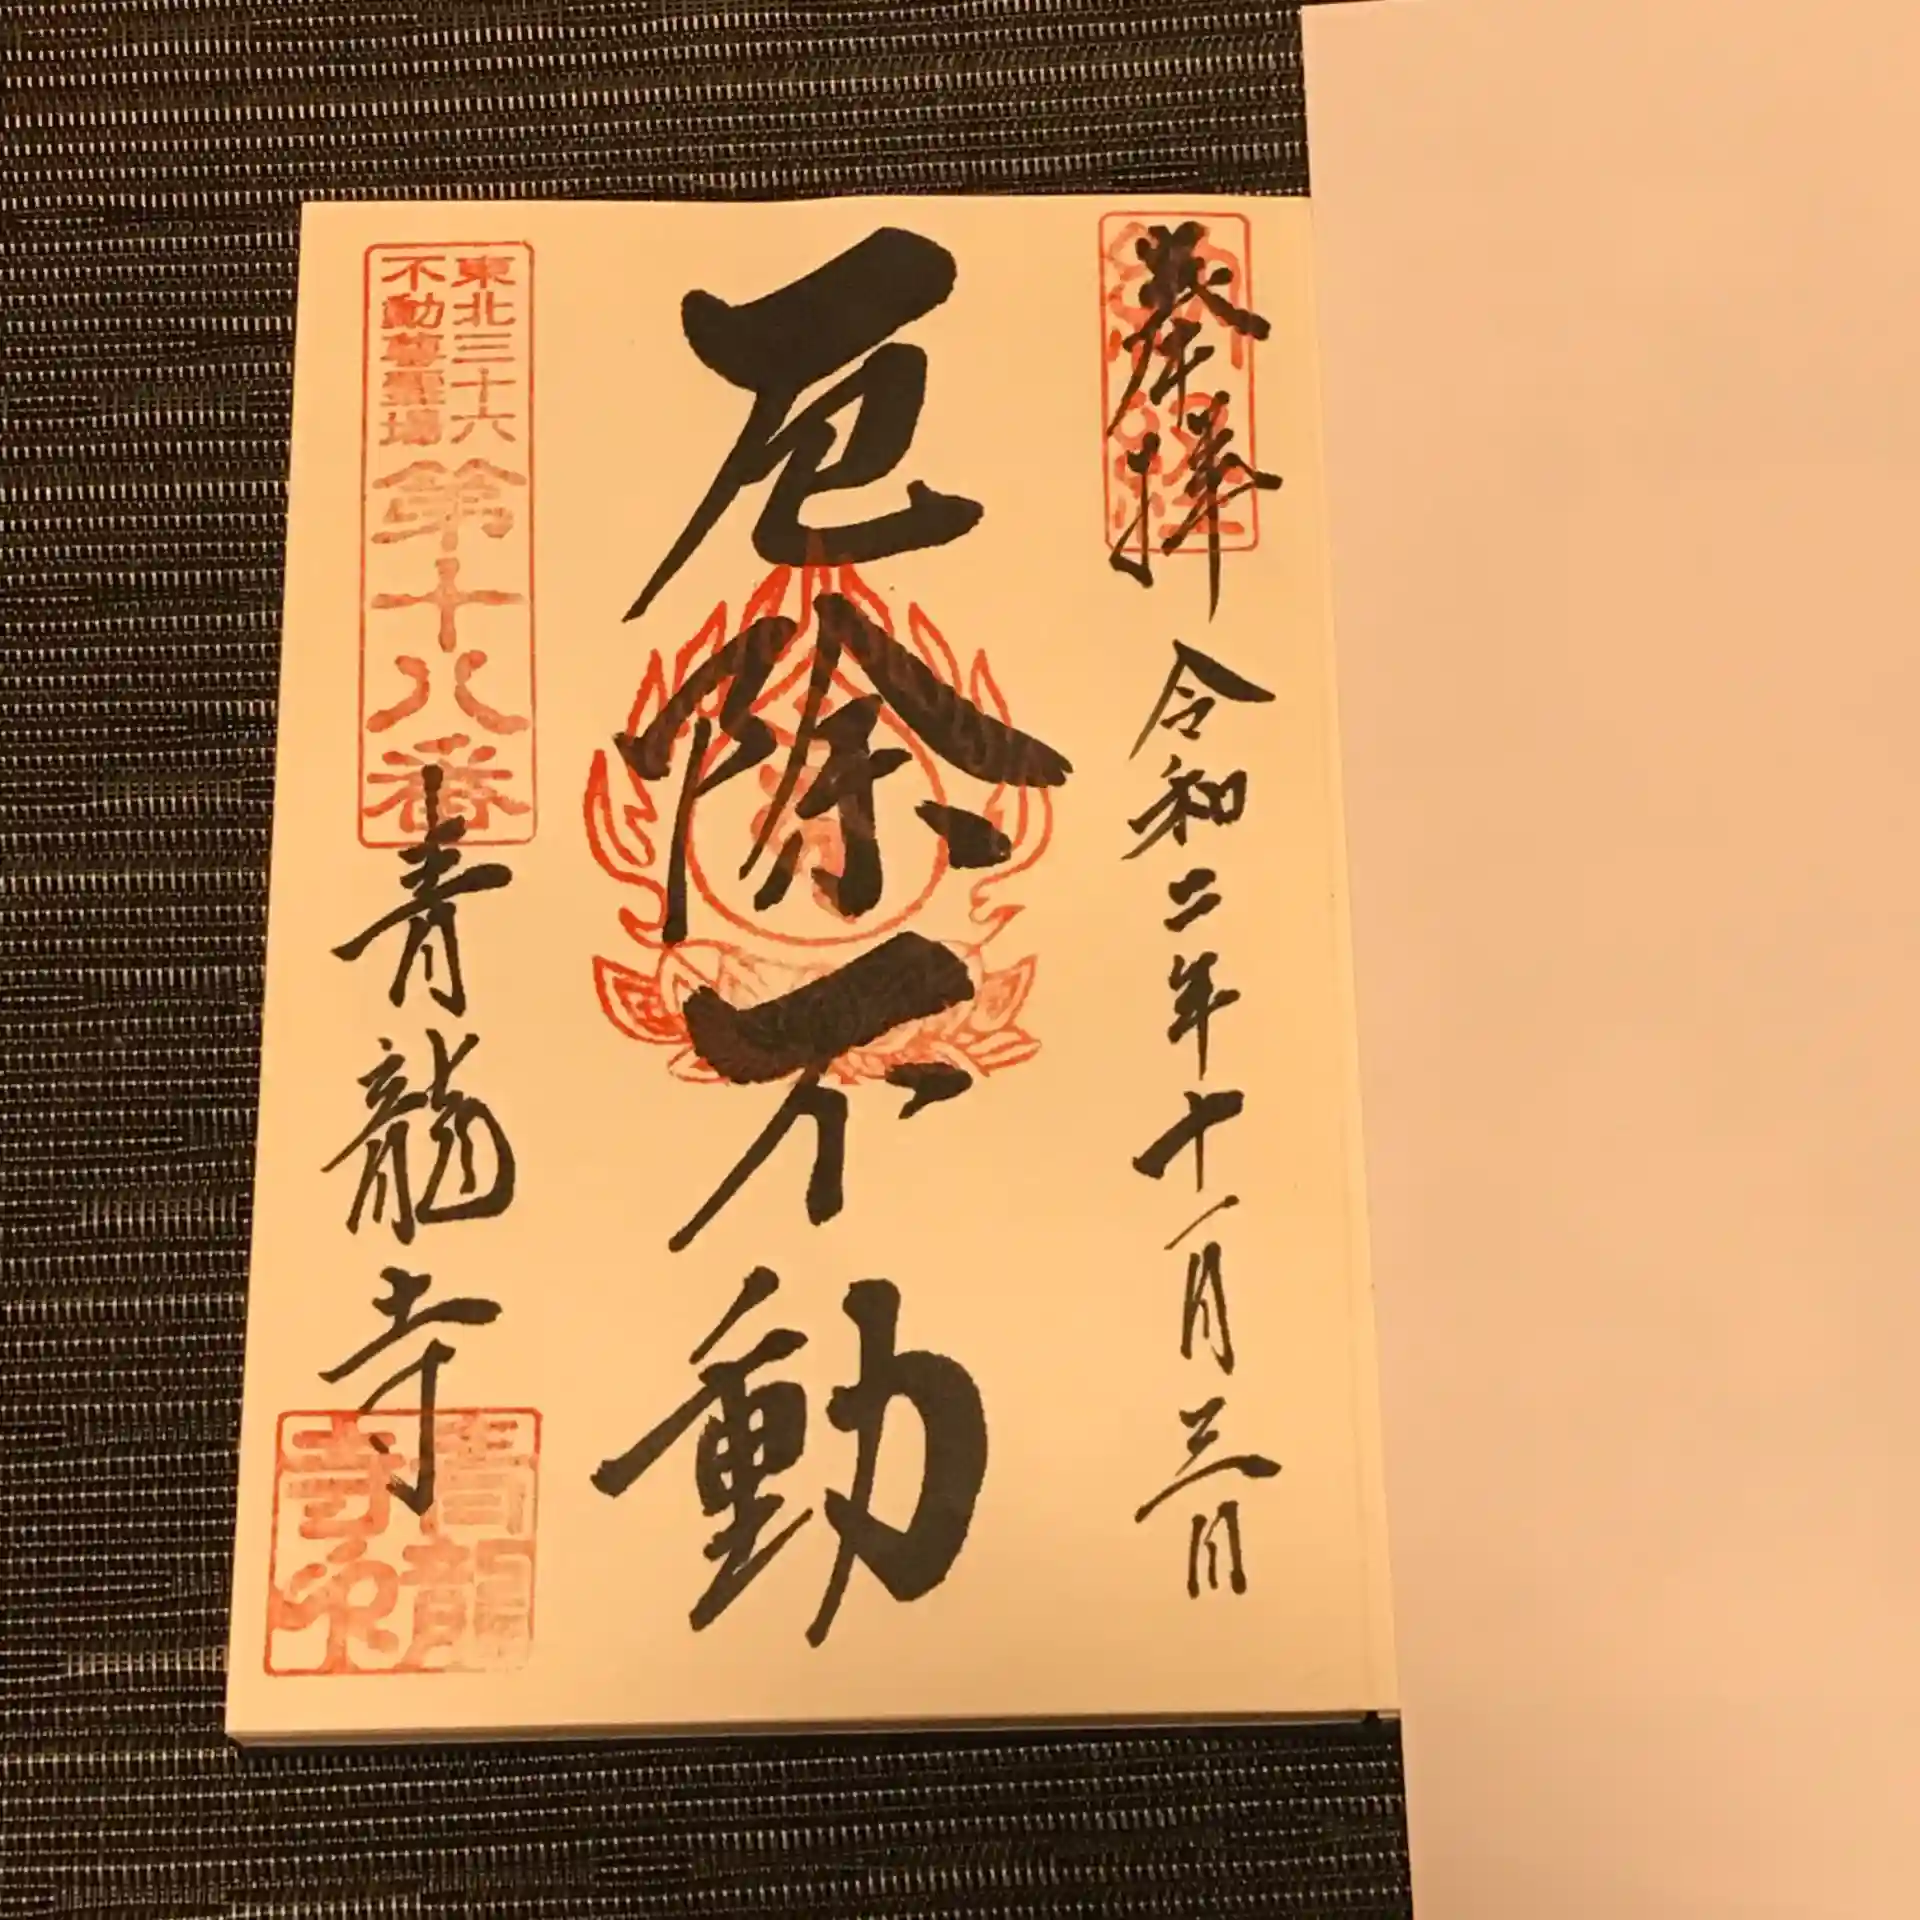 奉拝
令和二年十一月三日
厄除不動
東北三十六
不動尊霊場
第十八番
青龍寺
青龍
寺印